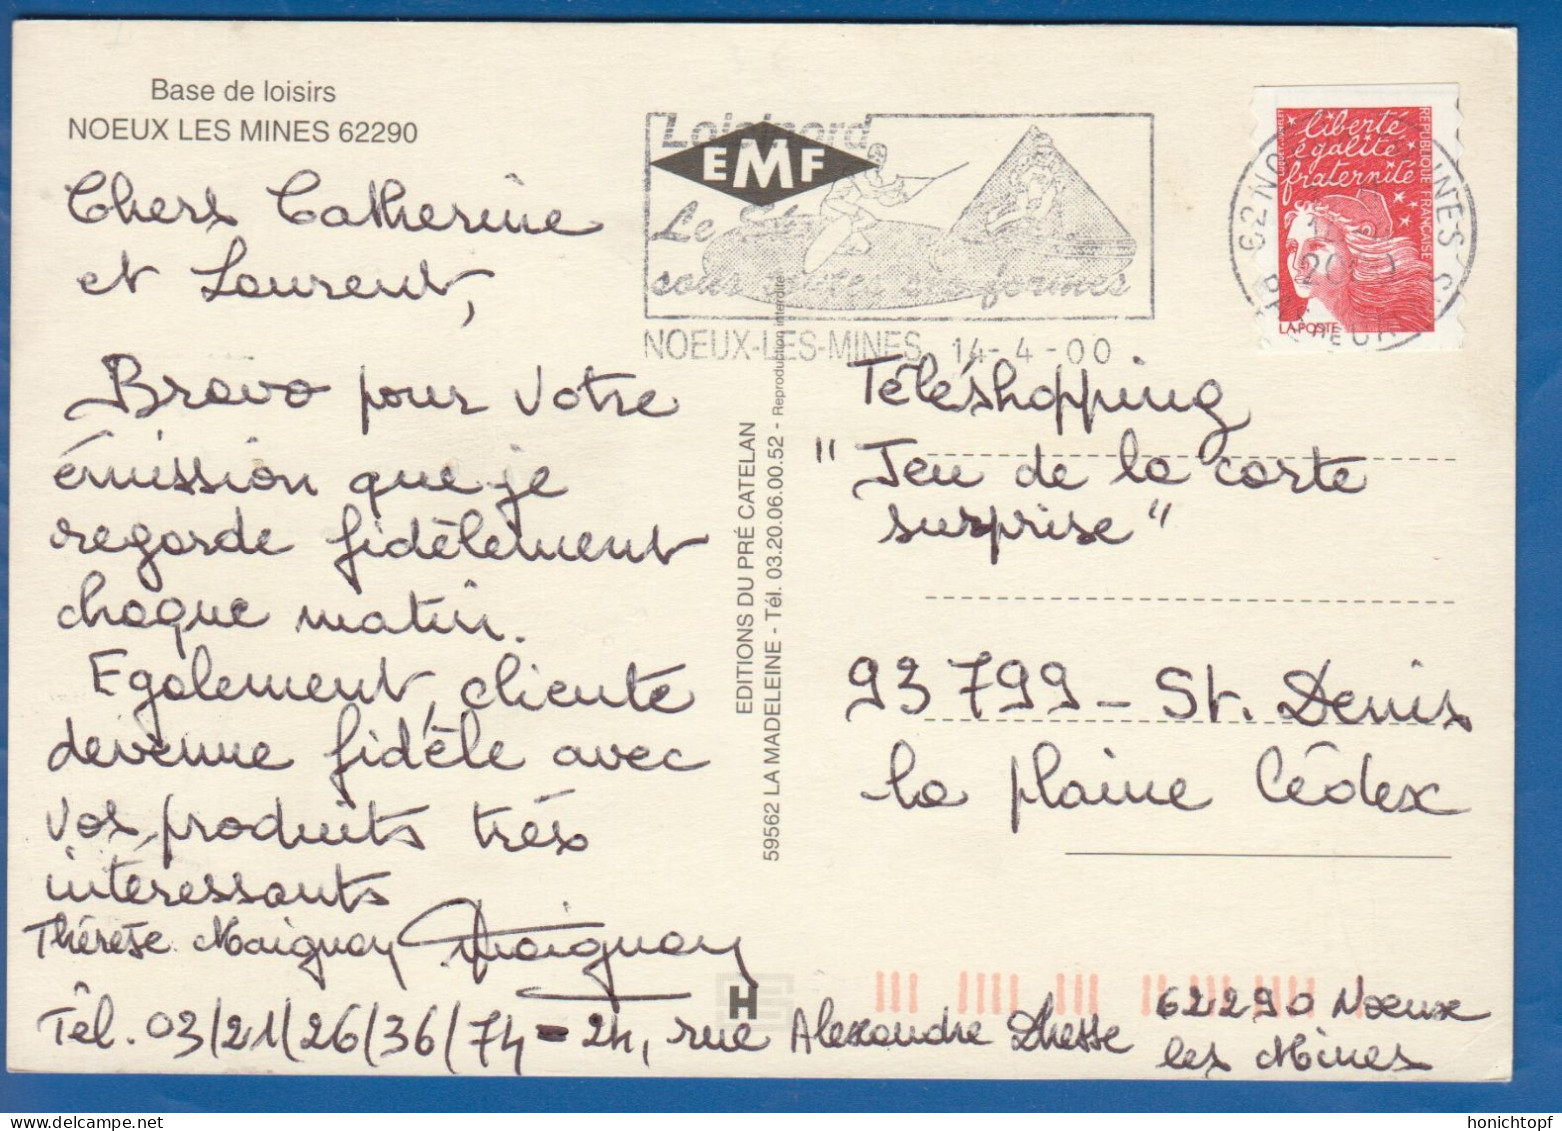 Base de loisirs
NOEUX LES MINES 62290
Chers Catherine
et Laurent,
Bravo pour votre
émission que je
regarde fidèlement
chaque matin.
Egalement, cliente
devenue fidèle avec
vos produits très
intéressants
Thérèse Maignay Maignay
Tél. 03/21/26/36/74 - 24, rue Alexandre
62290 Noeux
les Mines
EDITIONS DU PRÉ CATELAN
59562 LA MADELEINE - Tél. 03.20.06.00.52 - Reproduction interdite
Loisinord
EMF
Le Ski
sous toutes ses formes
NOEUX-LES-MINES 14-4-00
liberté,
égalité,
fraternité
REPUBLIQUE FRANÇAISE
LA POSTE
Téléshopping
"Jeu de la carte
surprise"
93799 - St. Denis
la plaine Cédex
H
honichtopf